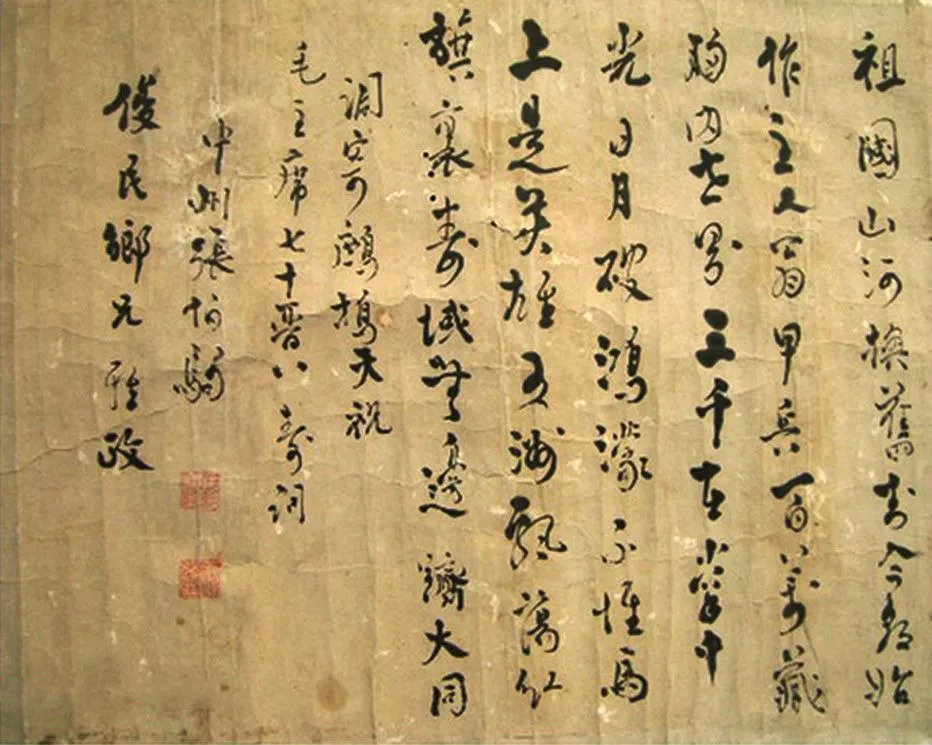 祖國山河換舊封今教始
作主人翁甲兵百萬藏
胸内世界三千在掌中
光日月破鴻濛不惟馬
上是英雄五洲飄蕩紅
旗裏壽域無邊躋大同
調寄鷓鴣天祝
毛主席七十晉八壽詞
中州張伯駒
俊民鄉兄雅政